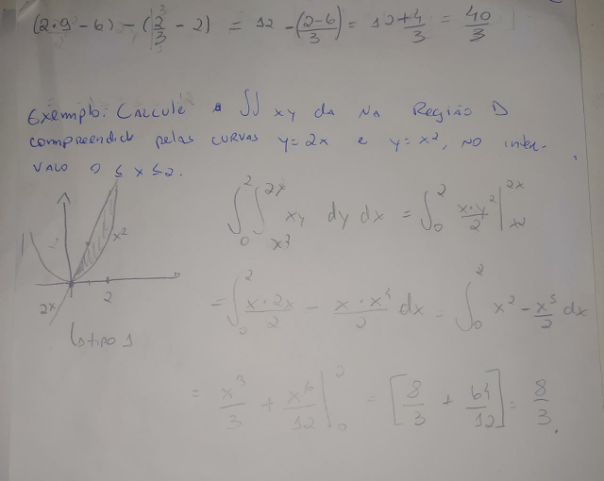 (2·9-6) - (2/3 - 2) = 12 - (2-6)/3 = 12+4/3 = 40/3
Exemplo: Calcule a ∫∫ xy da na Região D
compreendida pelas curvas y=2x e y=x², no inter-
valo 0 ≤ x ≤ 2.
∫₀² ∫_{x²}^{2x} xy dy dx = ∫₀² x·y²/2 |_{x²}^{2x}
x²
2x
2
↳ tipo 1
= ∫₀² x·2x/2 - x·x⁴/2 dx = ∫₀² x² - x⁵/2 dx
= x³/3 + x⁶/12 |₀² = [8/3 + 64/12] = 8/3.